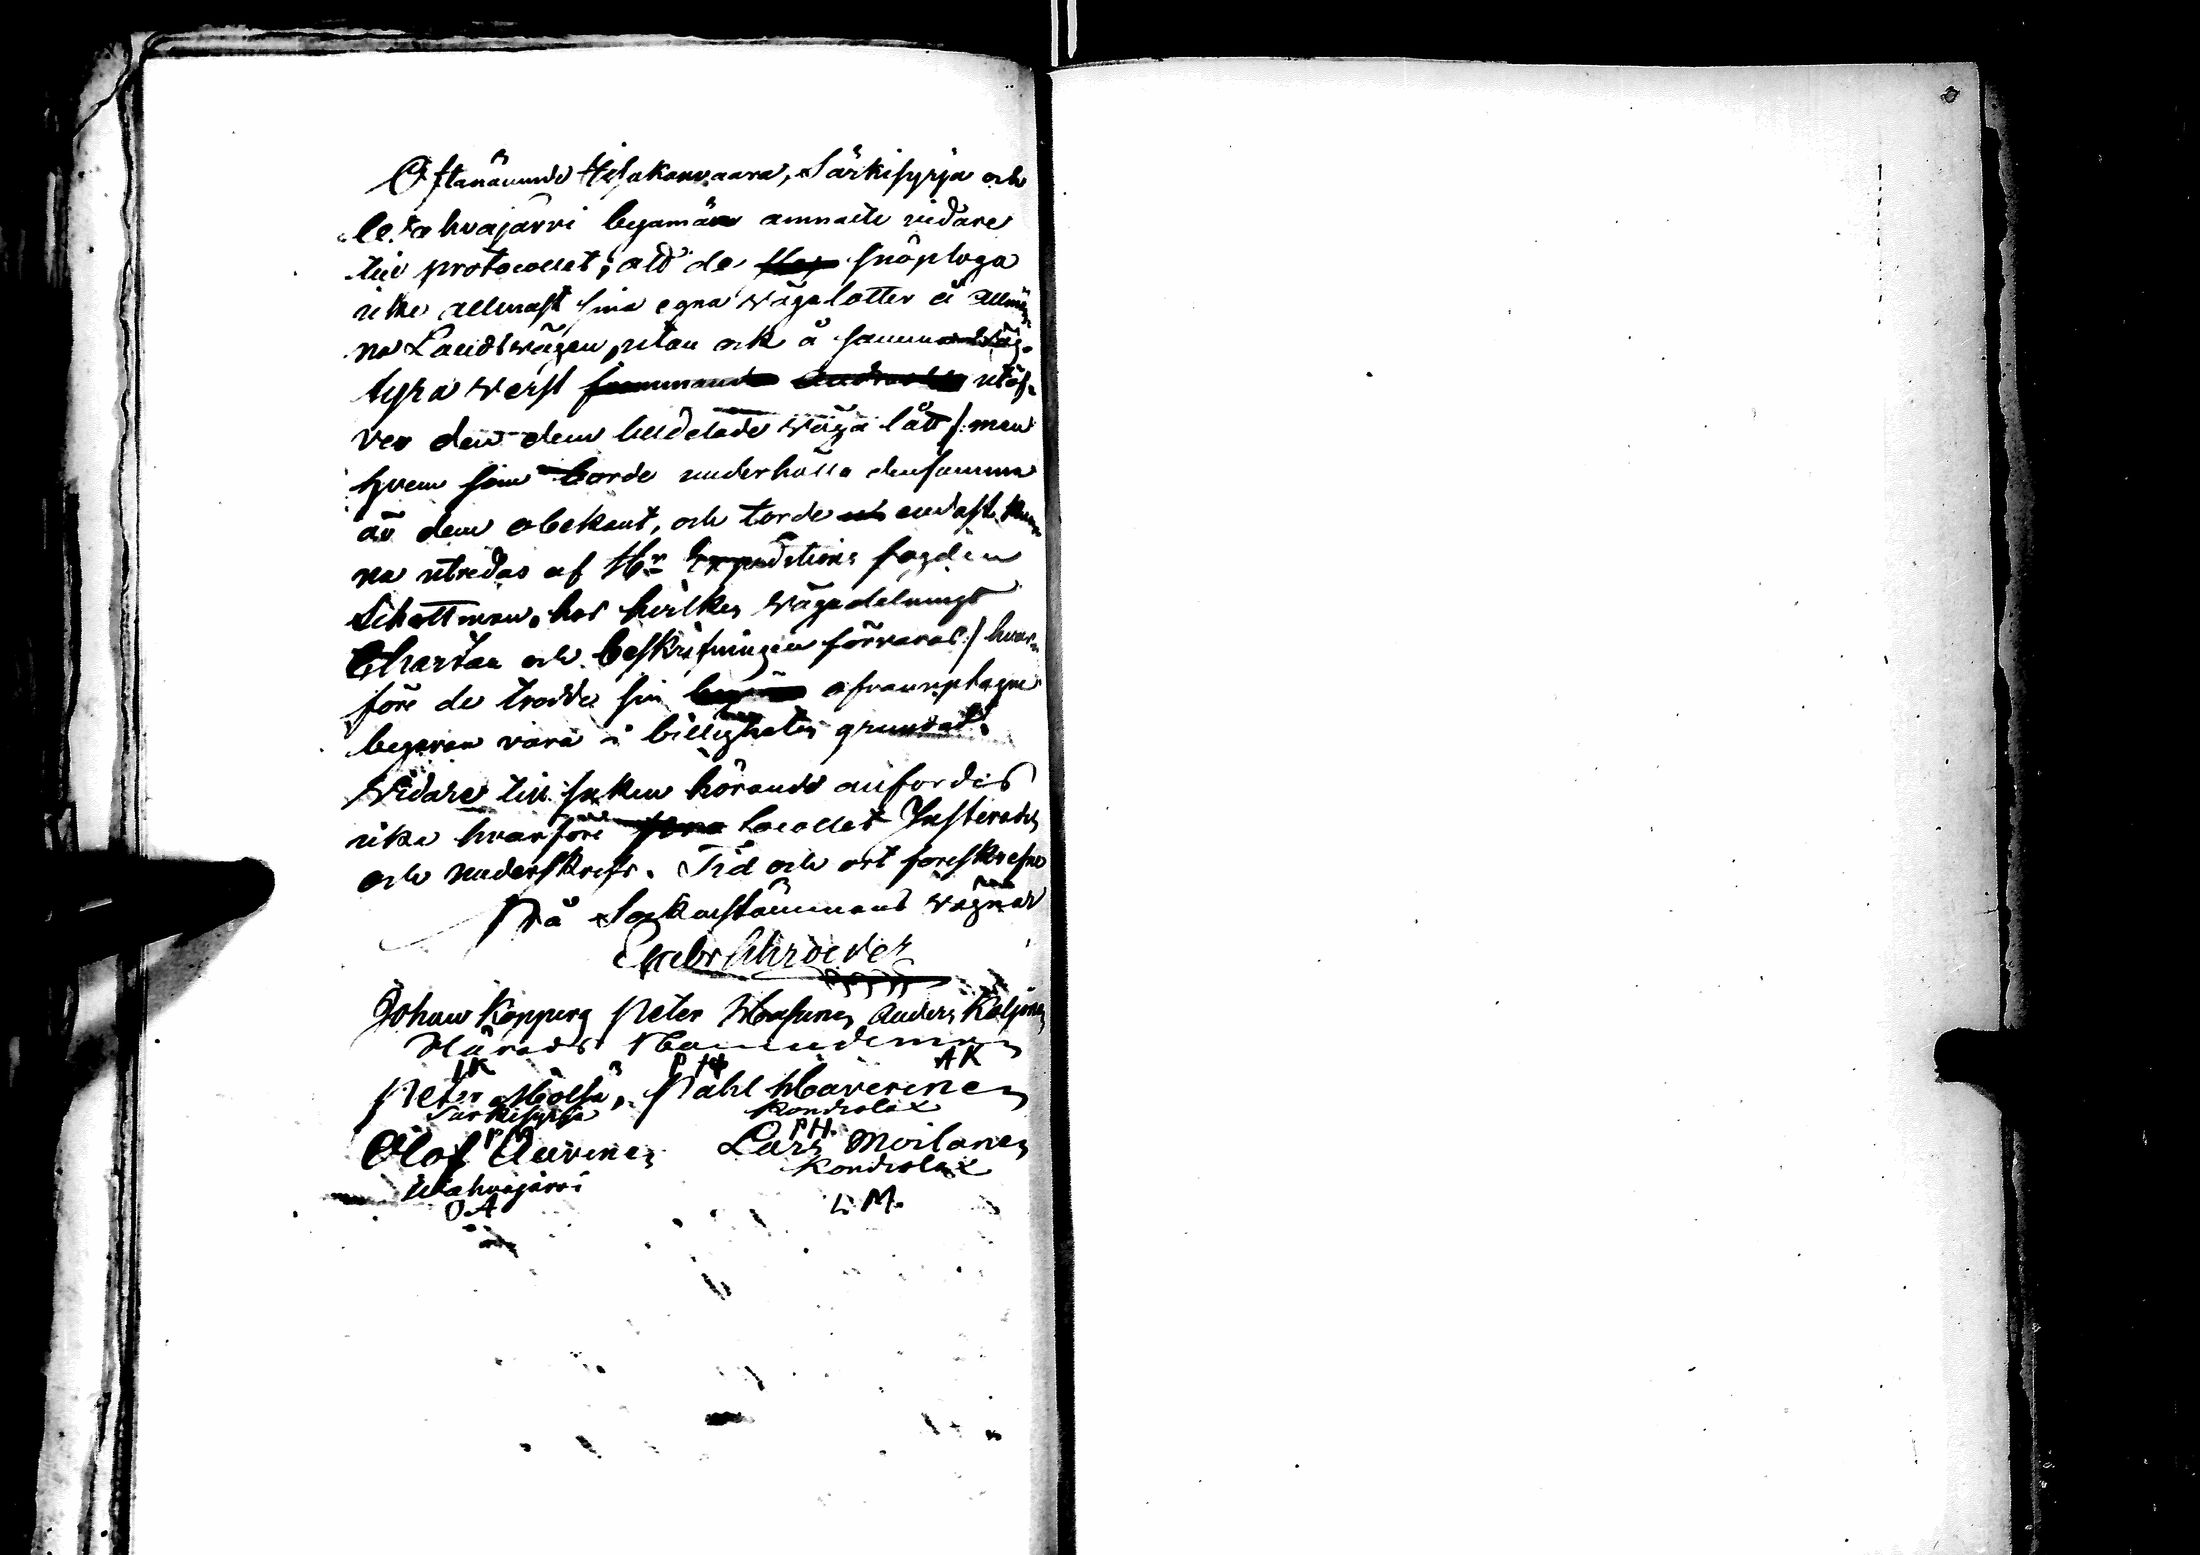 Oftanämnde Selakanvaara, Särkisyrja och
Utrahvajärvi byamän anmälte vidare
till protocollet; att de snöploga
icke allenast sina egna vägalotter å allmän
na Landsvägen, utan ock å samma
fyra werst utöf-
ver den dem tilldelade väga lått /: men
hvem som borde underhålla densamma
är dem obekant, och torde endast kun
na utredas af Hr Expeditions fogden
Schottman, hos hvilken vägadelnings
Chartan och beskrifningen förvaras :/ hvar-
före de trodde sin ofvanuptagne
begäran vara i billigheten grundat.
Widare till saken hörande anfördes
icke hvarföre tocollet Justerades
och underskrefs. Tid och ort föreskrefne
På Sockenstämmans vägnar
Gabr Ahroever
Johan Kopperg Peter Hasunen Anders Koljonen
Härads Nämndemän
JK PH AK
Peter Mölsä, Påhl Haverinen
Särkisyrja Kondiolax
PM PH.
Olof Auvinen Lars Moilanen
Utrahvajärvi Kondiolax
OA L. M.